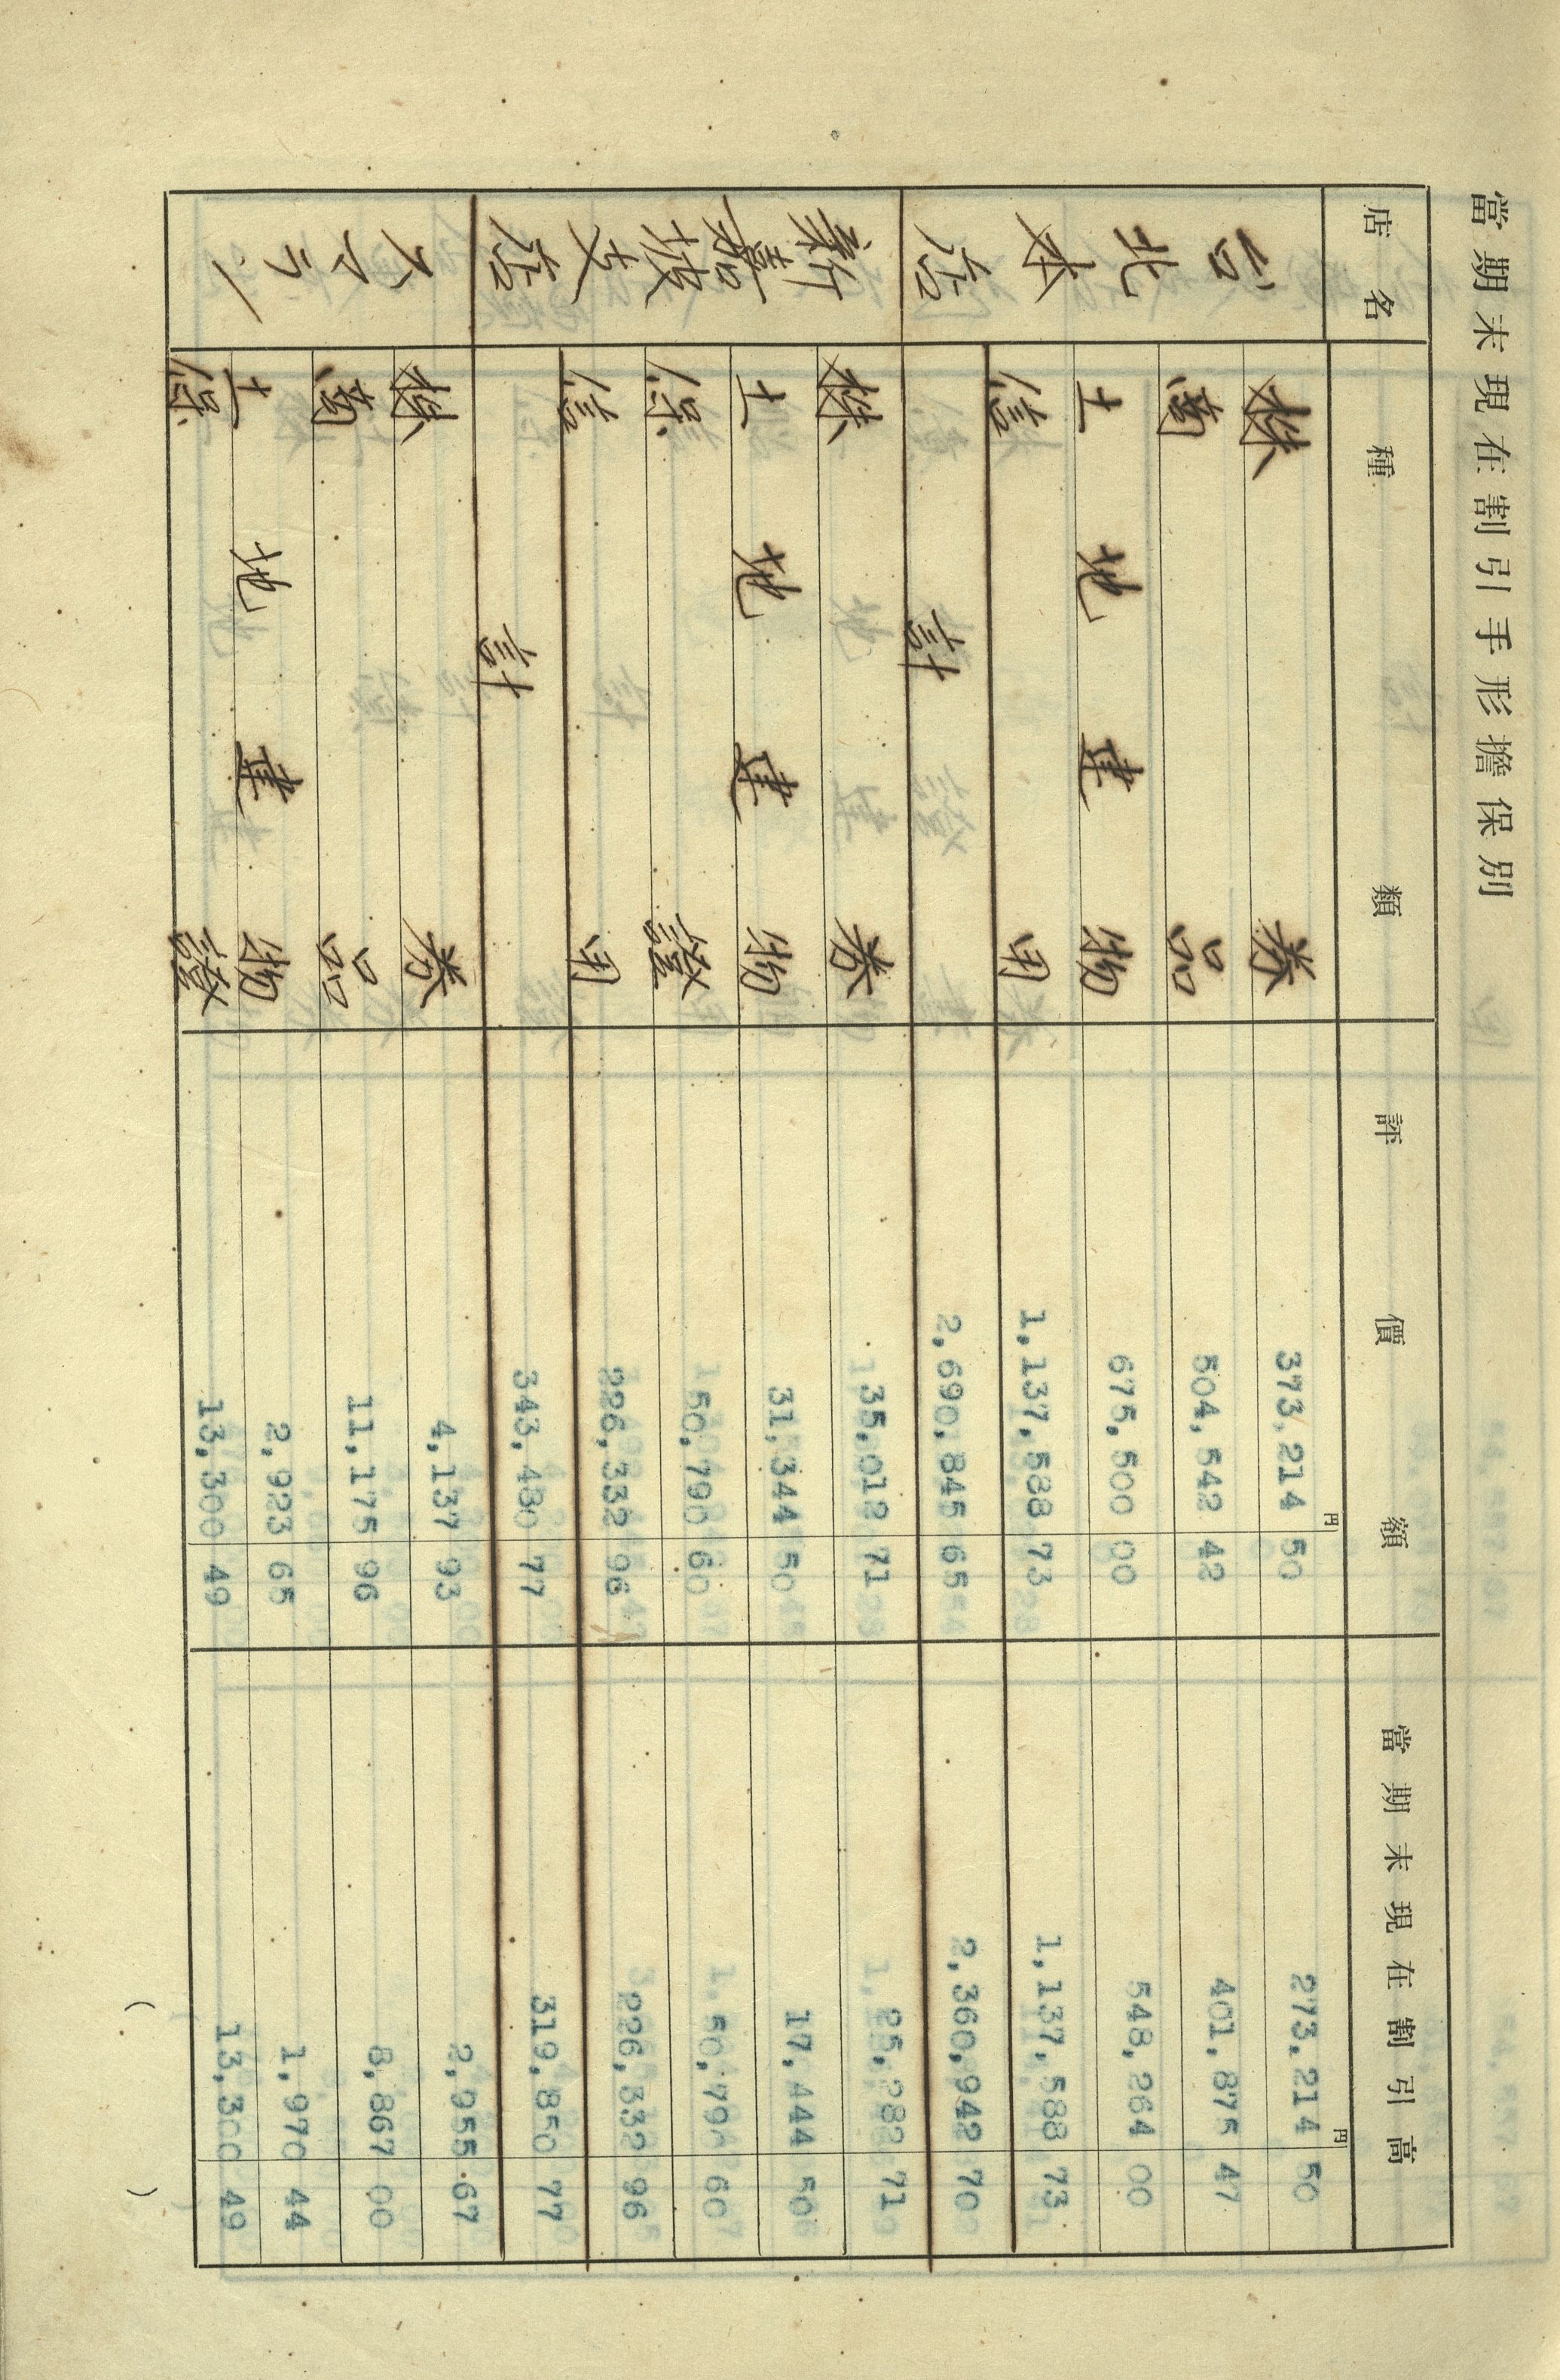 當期末現在割引手形擔保別
店名 種類 評價額 當期末現在割引高
台北本店
株券 373,214円50 273,214円50
商品 504,542 42 401,875 47
土地建物 675,500 00 548,264 00
信用 1,137,588 73 1,137,588 73
計 2,690,845 65 2,360,942 70
新嘉坡支店
株券 35,012 71 25,282 71
土地建物 31,344 50 17,444 50
保證 50,790 60 50,790 60
信用 226,332 96 226,332 96
計 343,480 77 319,850 77
スマラン
株券 4,137 93 2,955 67
商品 11,175 96 8,867 00
土地建物 2,923 65 1,970 44
保證 13,300 49 13,300 49
( )